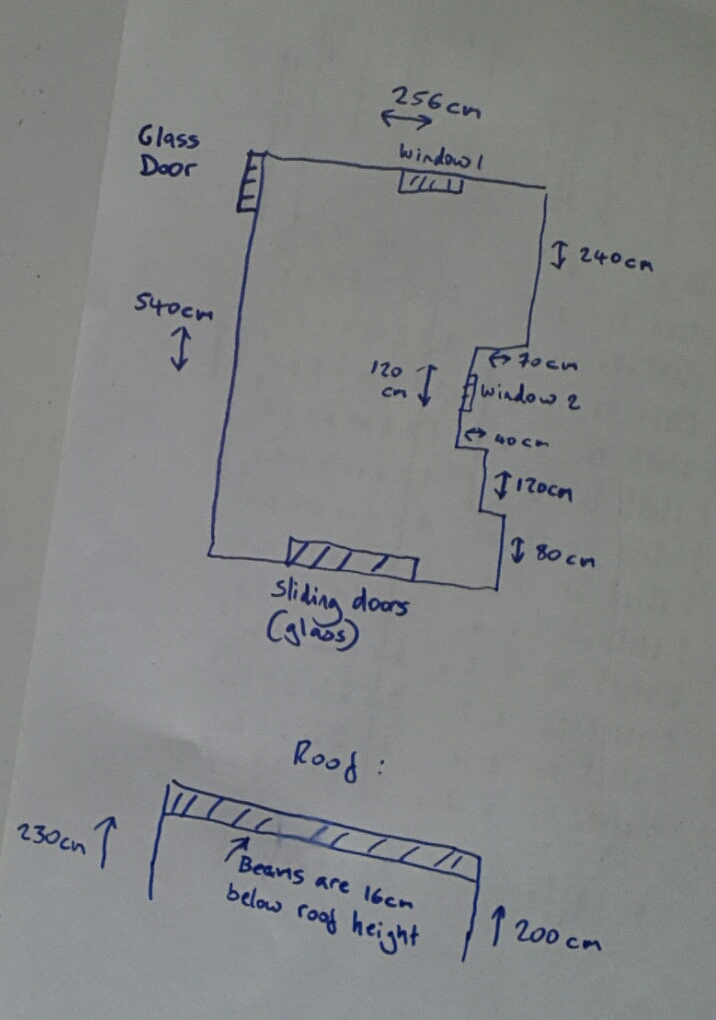 256cm
Glass
Door
Window 1
240cm
540cm
70cm
120
cm
Window 2
40cm
120cm
80cm
Sliding doors
(glass)
Roof :
230cm
Beams are 16cm
below roof height
200cm